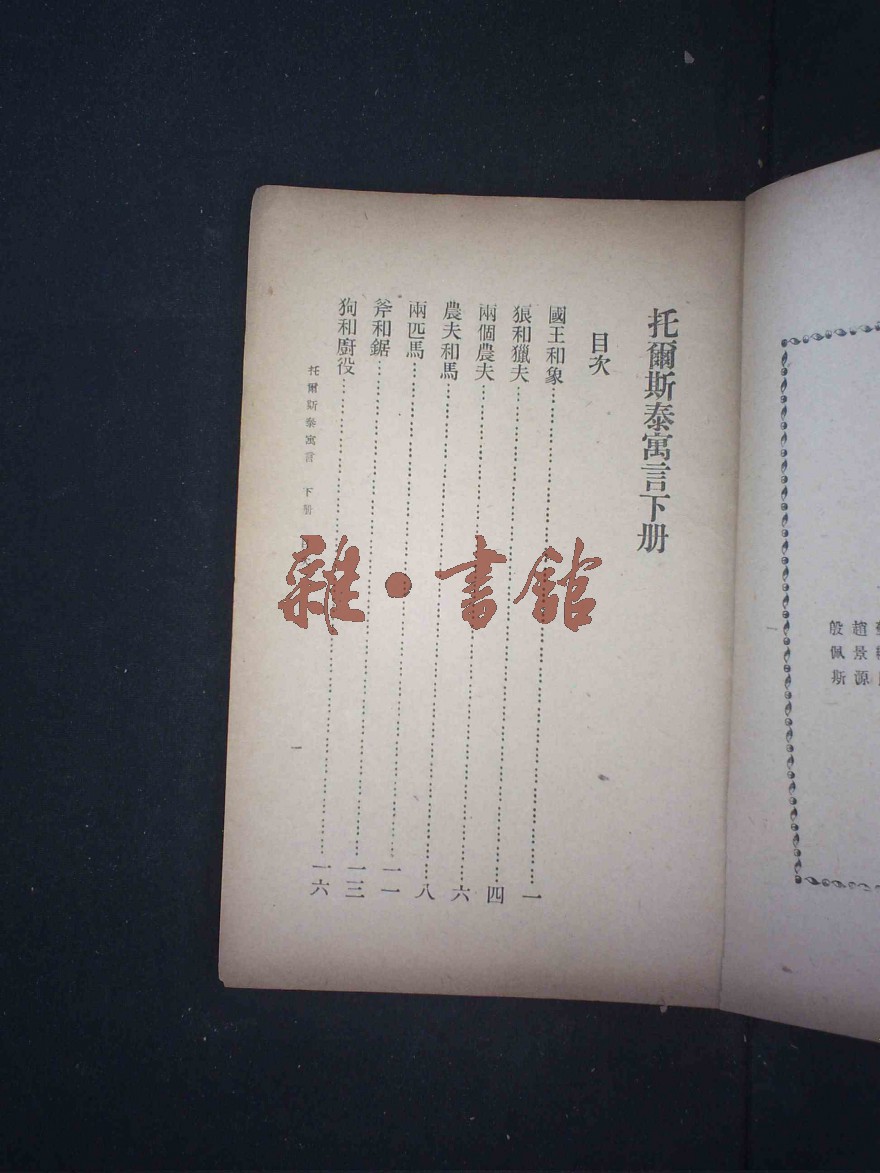 趙景源
殷佩斯
托爾斯泰寓言下册
目次
國王和象……………………一
狼和獵夫……………………四
兩個農夫……………………六
農夫和馬……………………八
兩匹馬……………………一一
斧和鋸……………………一三
狗和廚役……………………一六
托爾斯泰寓言 下册
一
雜·書館